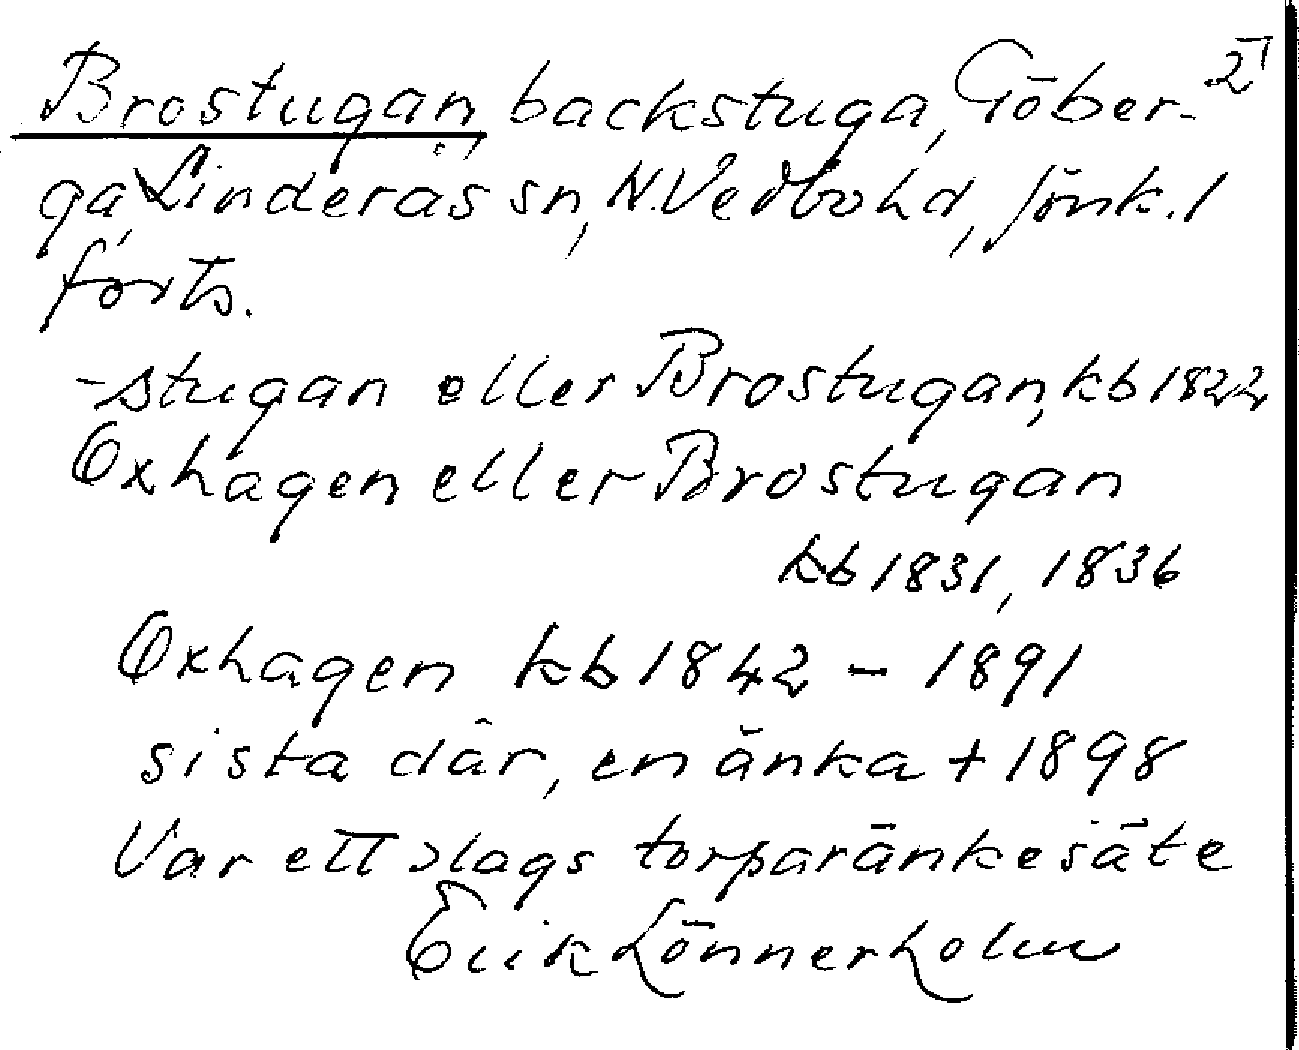 Brostugan backstuga, Göber- 2
ga, Linderås sn, N. Vedbo hd, Jönk. l
forts.
-stugan eller Brostugan, kb 1822
Oxhagen eller Brostugan
kb 1831, 1836
Oxhagen kb 1842 - 1891
sista där, en änka + 1898
Var ett slags torparänkesäte
Erik Lönnerholm